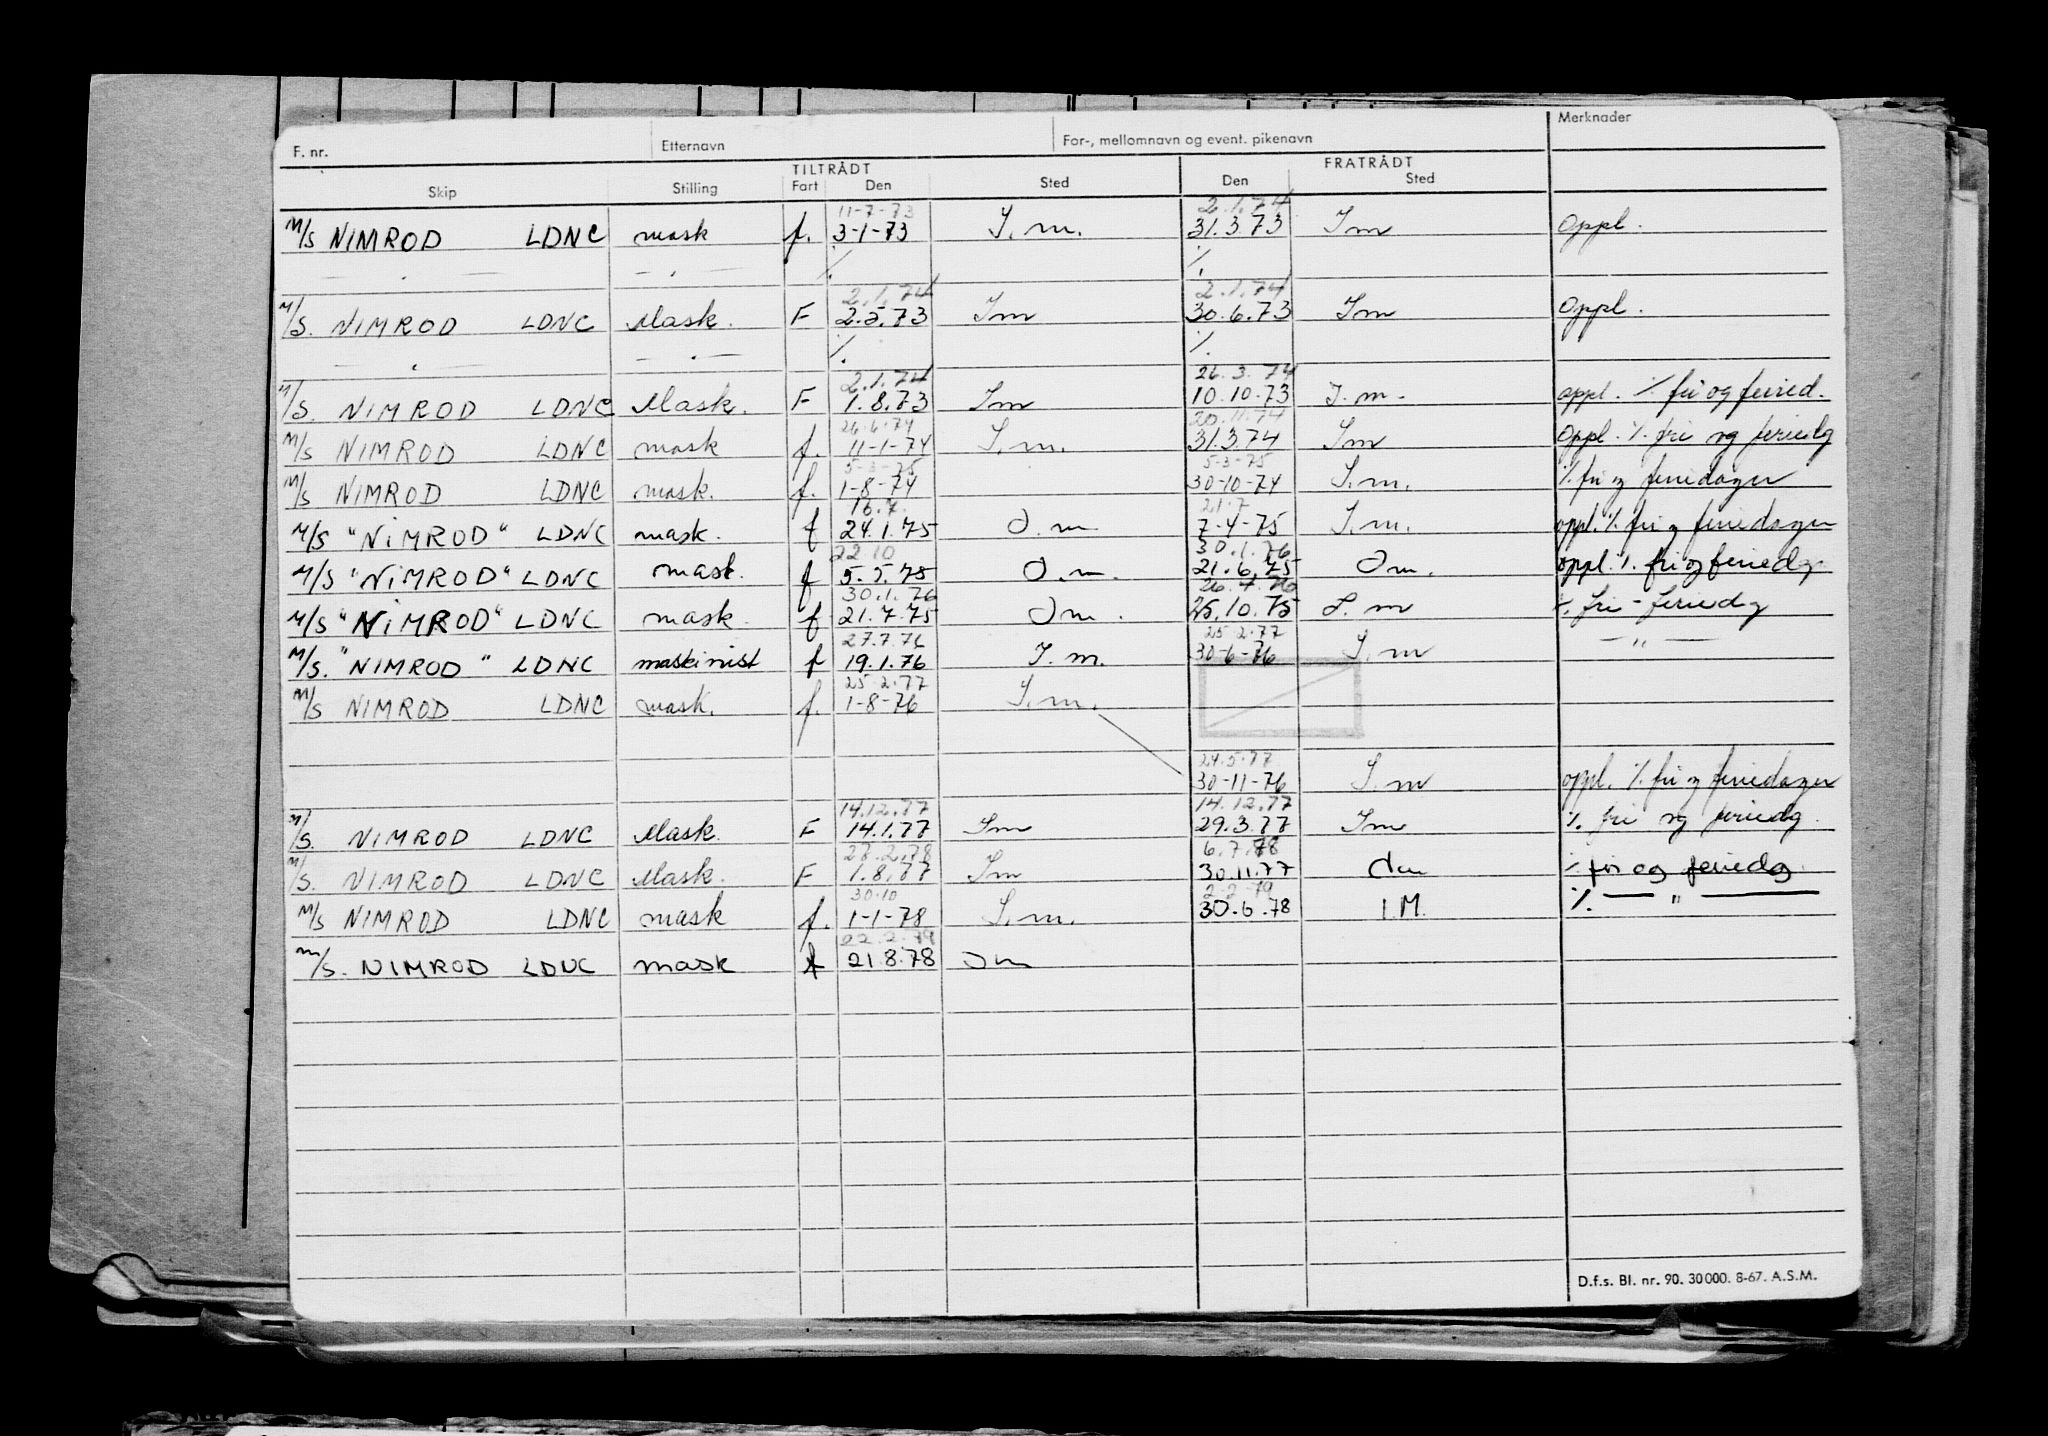 F. nr. Etternavn For-, mellomnavn og event. pikenavn Merknader
TILTRÅDT FRATRÅDT
Skip Stilling Fart Den Sted Den Sted
11-7-73 2.1.74
M/S NIMROD LDNC mask f. 3-1-73 I.m. 31.3.73 I m Oppl.
— . — — . — ./. ./.
2.1.74 2.1.74
M/S. NIMROD LDNC Mask. F 2.5.73 Im 30.6.73 Im Oppl.
— . — — . — ./. ./.
2.1.74 26.3.74
M/S. NIMROD LDNC Mask. F 1.8.73 Im 10.10.73 I.m. oppl. ./. fri og feried.
26.6.74 20.11.74
M/S NIMROD LDNC mask f. 11-1-74 I.m. 31.3.74 Im Oppl. ./. fri og feriedg
5-3-75 5-3-75
M/S NIMROD LDNC mask. f. 1-8-74 30-10-74 I.m. ./. fri og feriedager
16.7. 21.7
M/S "NIMROD" LDNC mask. f 24.1.75 I.m 7-4-75 I.m. oppl. ./. fri og feriedager
22 10 30.1.76
M/S "NIMROD" LDNC mask. f 5.5.75 I.m. 21.6.75 Im. oppl. ./. fri og feriedg
30.1.76 26.7.76
M/S "NIMROD" LDNC mask. f 21.7.75 Im. 25.10.75 I.m ./. fri - feriedg
27.7.76 25.2.77
M/S. "NIMROD" LDNC maskinist f 19.1.76 I.m. 30-6-76 I.m — " —
25.2.77
M/S NIMROD LDNC mask. f. 1-8-76 I.m.
24.5.77
30-11-76 I.m oppl. ./. fri og feriedager
14.12.77 14.12.77
M/S. NIMROD LDNC Mask. F 14.1.77 Im 29.3.77 Im ./. fri og feriedg.
27.2.78 6.7.78
M/S. NIMROD LDNC Mask. F 1.8.77 Im 30.11.77 ./. fri og feriedg
30.10 2-2-79
M/S NIMROD LDNC mask f. 1-1-78 I.m. 30.6.78 I.M. ./. — " —
22.2.79
M/S. NIMROD LDNC mask f 21.8.78 Im
D.f.s. Bl. nr. 90. 30 000. 8-67. A.S.M.